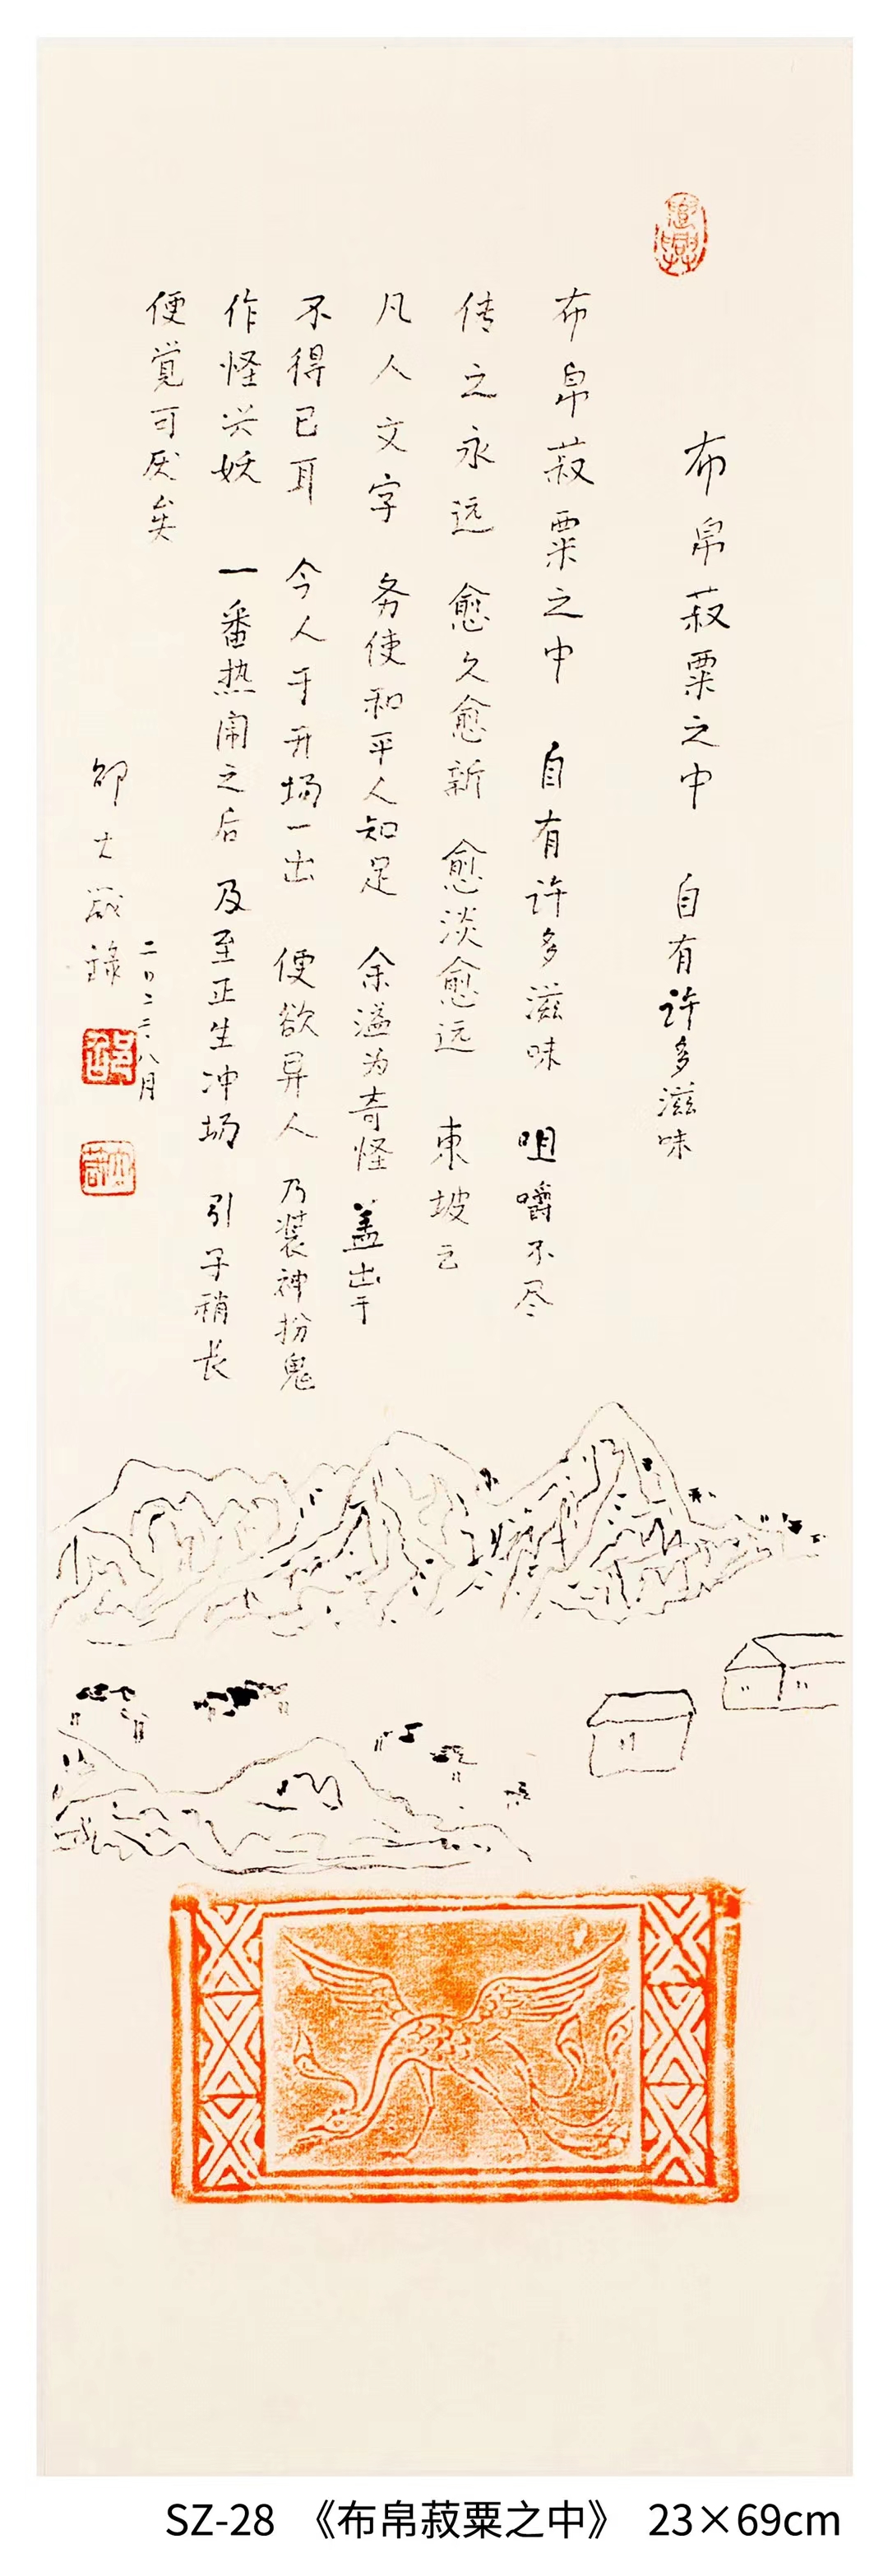 布帛菽粟之中 自有许多滋味
布帛菽粟之中 自有许多滋味 咀嚼不尽
传之永远 愈久愈新 愈淡愈远 東坡云
凡人文字 务使和平人知足 余溢为奇怪 盖出于
不得已耳 今人于开场一出 便欲异人 乃装神扮鬼
作怪兴妖 一番热闹之后 及至正生冲场 引子稍长
便觉可厌矣
二〇二二.八月
邵大箴錄
SZ-28 《布帛菽粟之中》 23×69cm